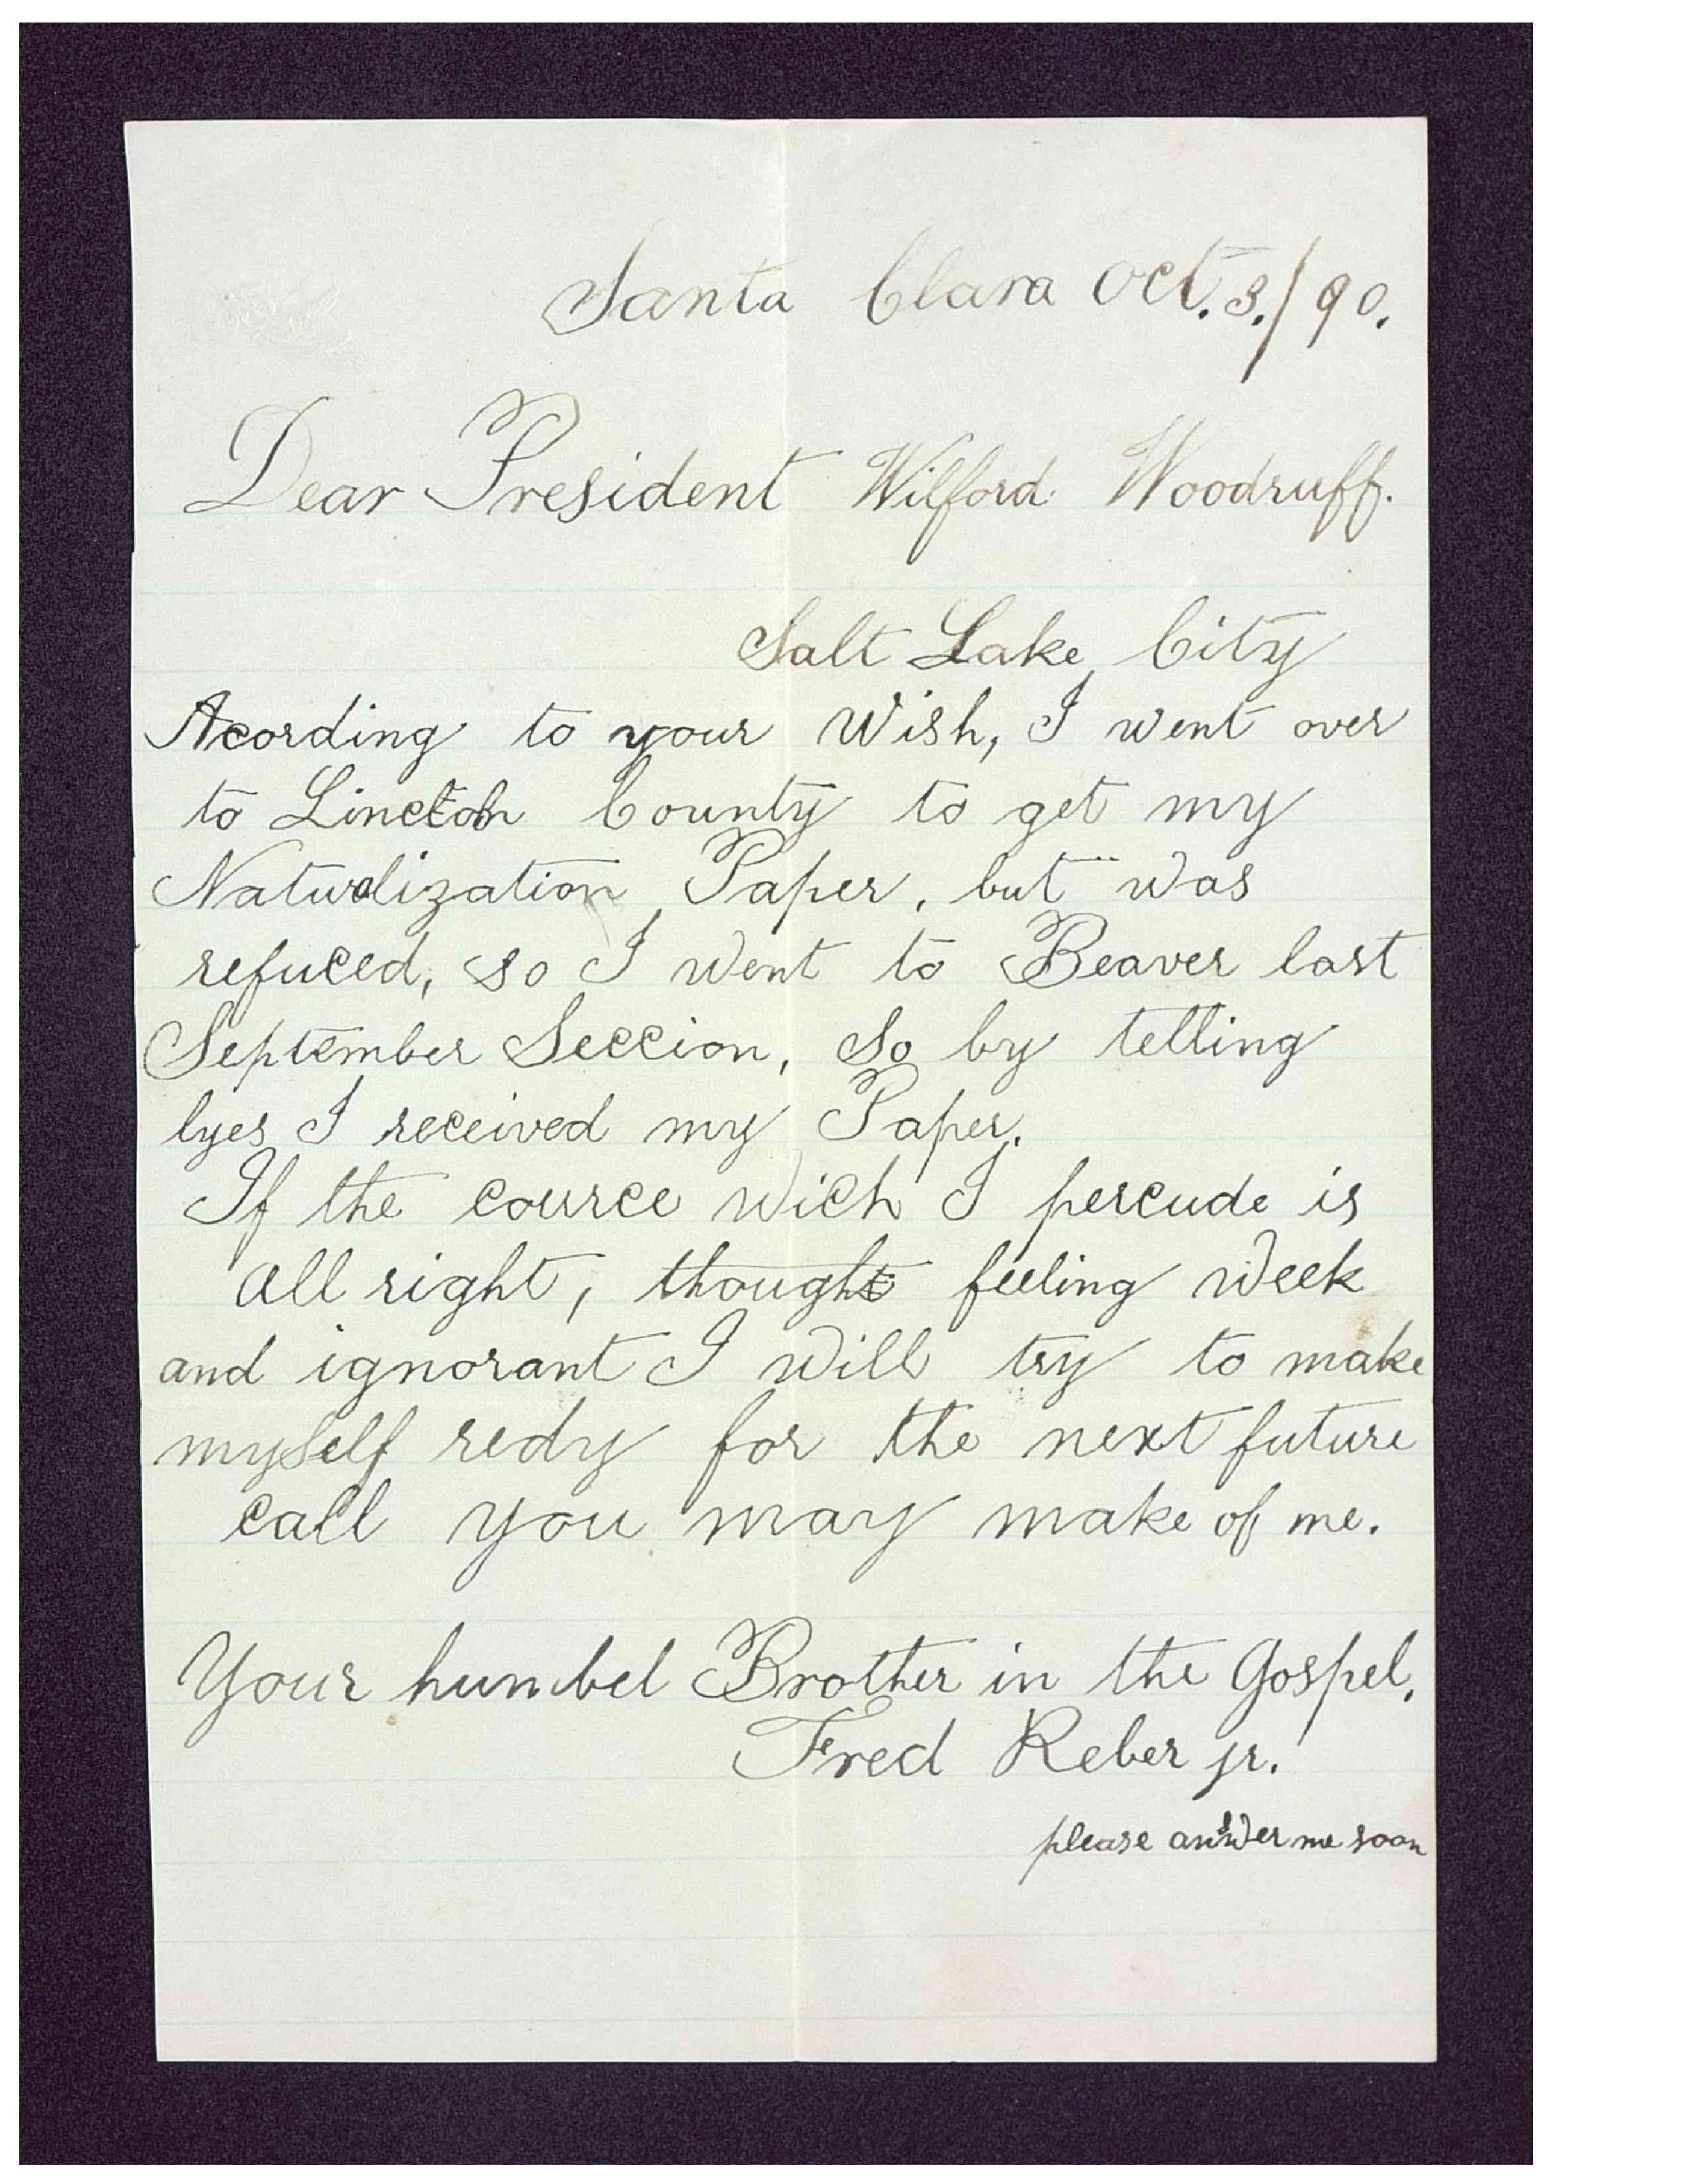 Santa Clara Oct. 3./90.
Dear President Wilford Woodruff.
Salt Lake City
Acording to your Wish, I went over
to Lincton County to get my
Naturalization Paper, but was
refuced, so I went to Beaver last
September Seccion, So by telling
lyes I received my Paper.
If the cource wich I percude is
all right, thought feeling week
and ignorant I will try to make
myself redy for the next future
call you may make of me.
Your humbel Brother in the Gospel,
Fred Reber jr.
please answer me soon